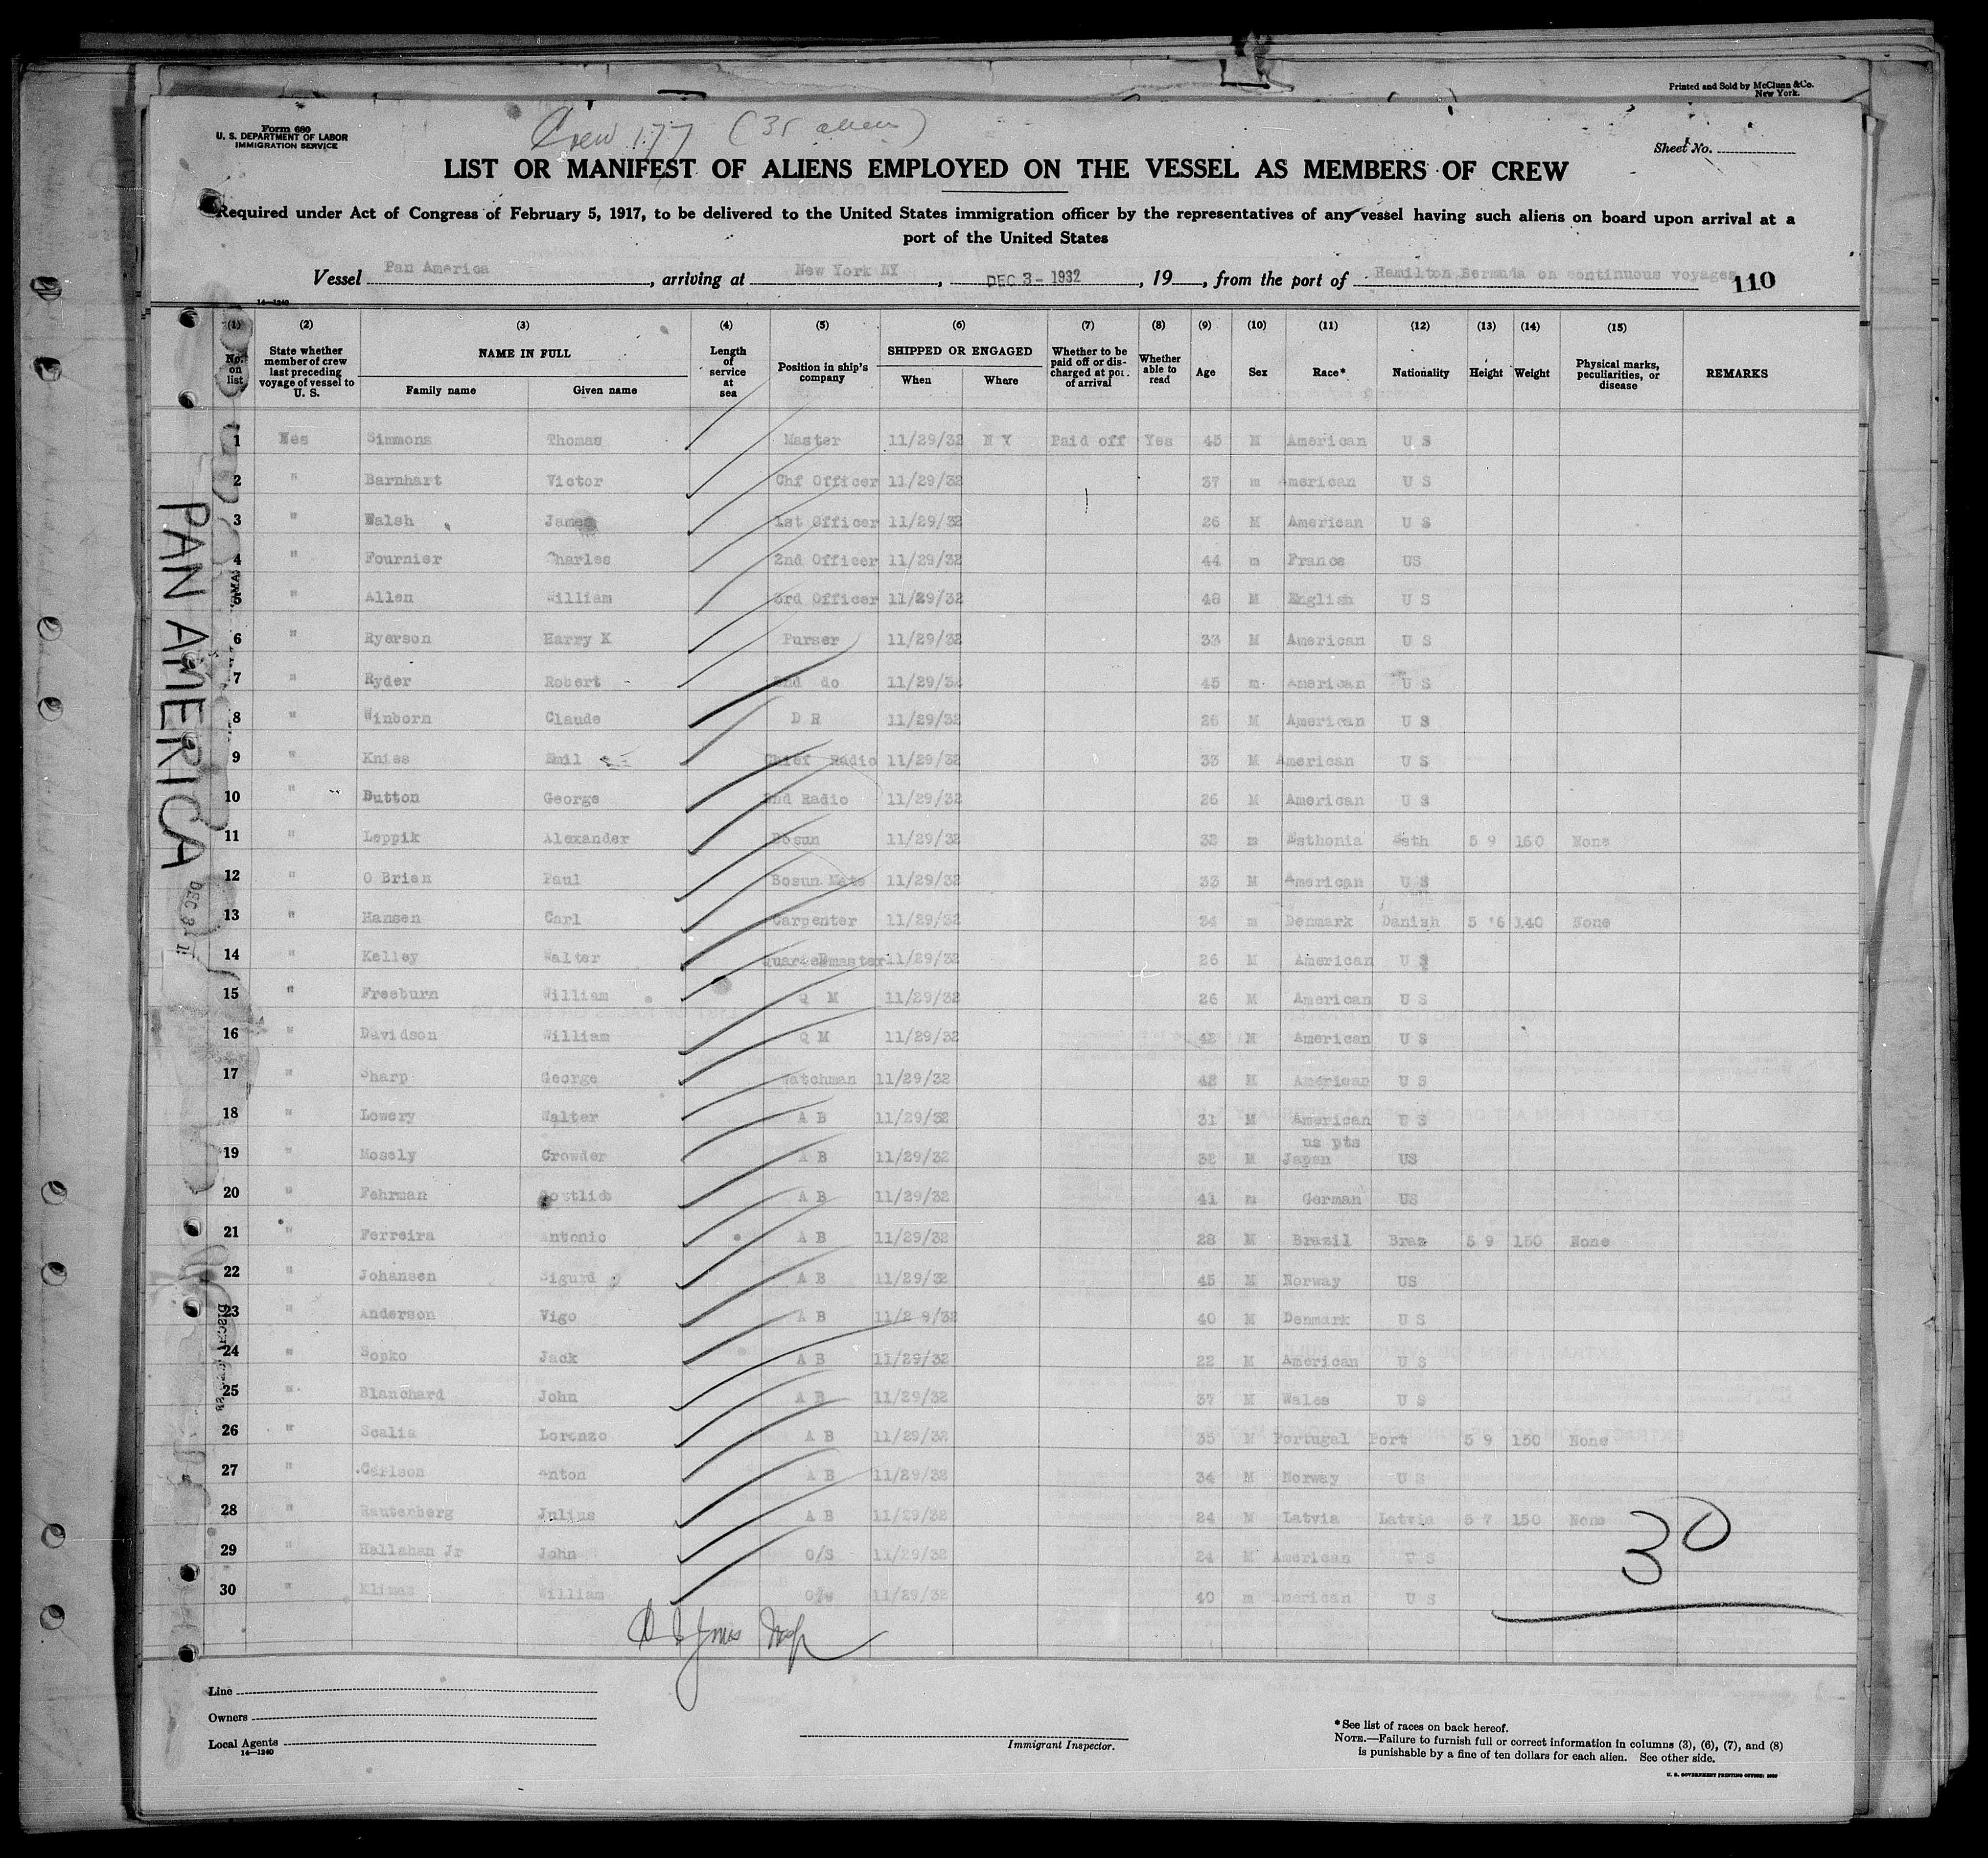 Printed and Sold by McClunn & Co.
New York.
Form 680
U. S. DEPARTMENT OF LABOR
IMMIGRATION SERVICE
Crew 177 (35 aliens)
Sheet No.
LIST OR MANIFEST OF ALIENS EMPLOYED ON THE VESSEL AS MEMBERS OF CREW
Required under Act of Congress of February 5, 1917, to be delivered to the United States immigration officer by the representatives of any vessel having such aliens on board upon arrival at a
port of the United States
Vessel Pan America, arriving at New York NY, DEC 3 - 1932, 19, from the port of Hamilton Bermuda on continuous voyages 110
14—1240
(1) (2) (3) (4) (5) (6) (7) (8) (9) (10) (11) (12) (13) (14) (15)
No. on list State whether member of crew last preceding voyage of vessel to U. S. NAME IN FULL Family name Given name Length of service at sea Position in ship's company SHIPPED OR ENGAGED When Where Whether to be paid off or discharged at port of arrival Whether able to read Age Sex Race* Nationality Height Weight Physical marks, peculiarities, or disease REMARKS
1 Yes Simmons Thomas Master 11/29/32 N Y Paid off Yes 45 M American U S
2 " Barnhart Victor Chf Officer 11/29/32 37 m American U S
3 " Walsh James 1st Officer 11/29/32 26 M American U S
4 " Fournier Charles 2nd Officer 11/29/32 44 m France US
5 " Allen William 3rd Officer 11/29/32 48 M English U S
6 " Ryerson Harry K Purser 11/29/32 33 M American U S
7 " Ryder Robert 2nd do 11/29/32 45 m American U S
8 " Winborn Claude D R 11/29/32 26 M American U S
9 " Kniss Emil Chief Radio 11/29/32 33 M American U S
10 " Dutton George 2nd Radio 11/29/32 26 M American U S
11 " Leppik Alexander Bosun 11/29/32 32 m Esthonia Esth 5 9 160 None
12 " O Brien Paul Bosun Mate 11/29/32 33 M American U S
13 " Hansen Carl Carpenter 11/29/32 34 m Denmark Danish 5 6 140 None
14 " Kelley Walter Quartermaster 11/29/32 26 M American U S
15 " Freeburn William Q M 11/29/32 26 M American U S
16 " Davidson William Q M 11/29/32 42 M American U S
17 " Sharp George Watchman 11/29/32 42 M American U S
18 " Lowery Walter A B 11/29/32 31 M American U S
us pts
19 " Mosely Crowder A B 11/29/32 32 M Japan US
20 " Fehrman Gottlieb A B 11/29/32 41 m German US
21 " Ferreira Antonio A B 11/29/32 28 M Brazil Braz 5 9 150 None
22 " Johansen Sigurd A B 11/29/32 45 M Norway US
23 " Anderson Vigo A B 11/2 9/32 40 M Denmark U S
24 " Sopko Jack A B 11/29/32 22 M American U S
25 " Blanchard John A B 11/29/32 37 M Wales U S
26 " Scalis Lorenzo A B 11/29/32 35 M Portugal Port 5 9 150 None
27 " Carlson Anton A B 11/29/32 34 M Norway U S
28 " Rauterberg Julius A B 11/29/32 24 M Latvia Latvia 5 7 150 None
29 " Hallahan Jr John O/S 11/29/32 24 M American U S
30 " Klimas William O/s 11/29/32 40 m American U S
30
PAN AMERICA
DEC 3
Line
Owners
Local Agents
14—1240
Immigrant Inspector.
*See list of races on back hereof.
NOTE.—Failure to furnish full or correct information in columns (3), (6), (7), and (8)
is punishable by a fine of ten dollars for each alien. See other side.
U. S. GOVERNMENT PRINTING OFFICE: 1930